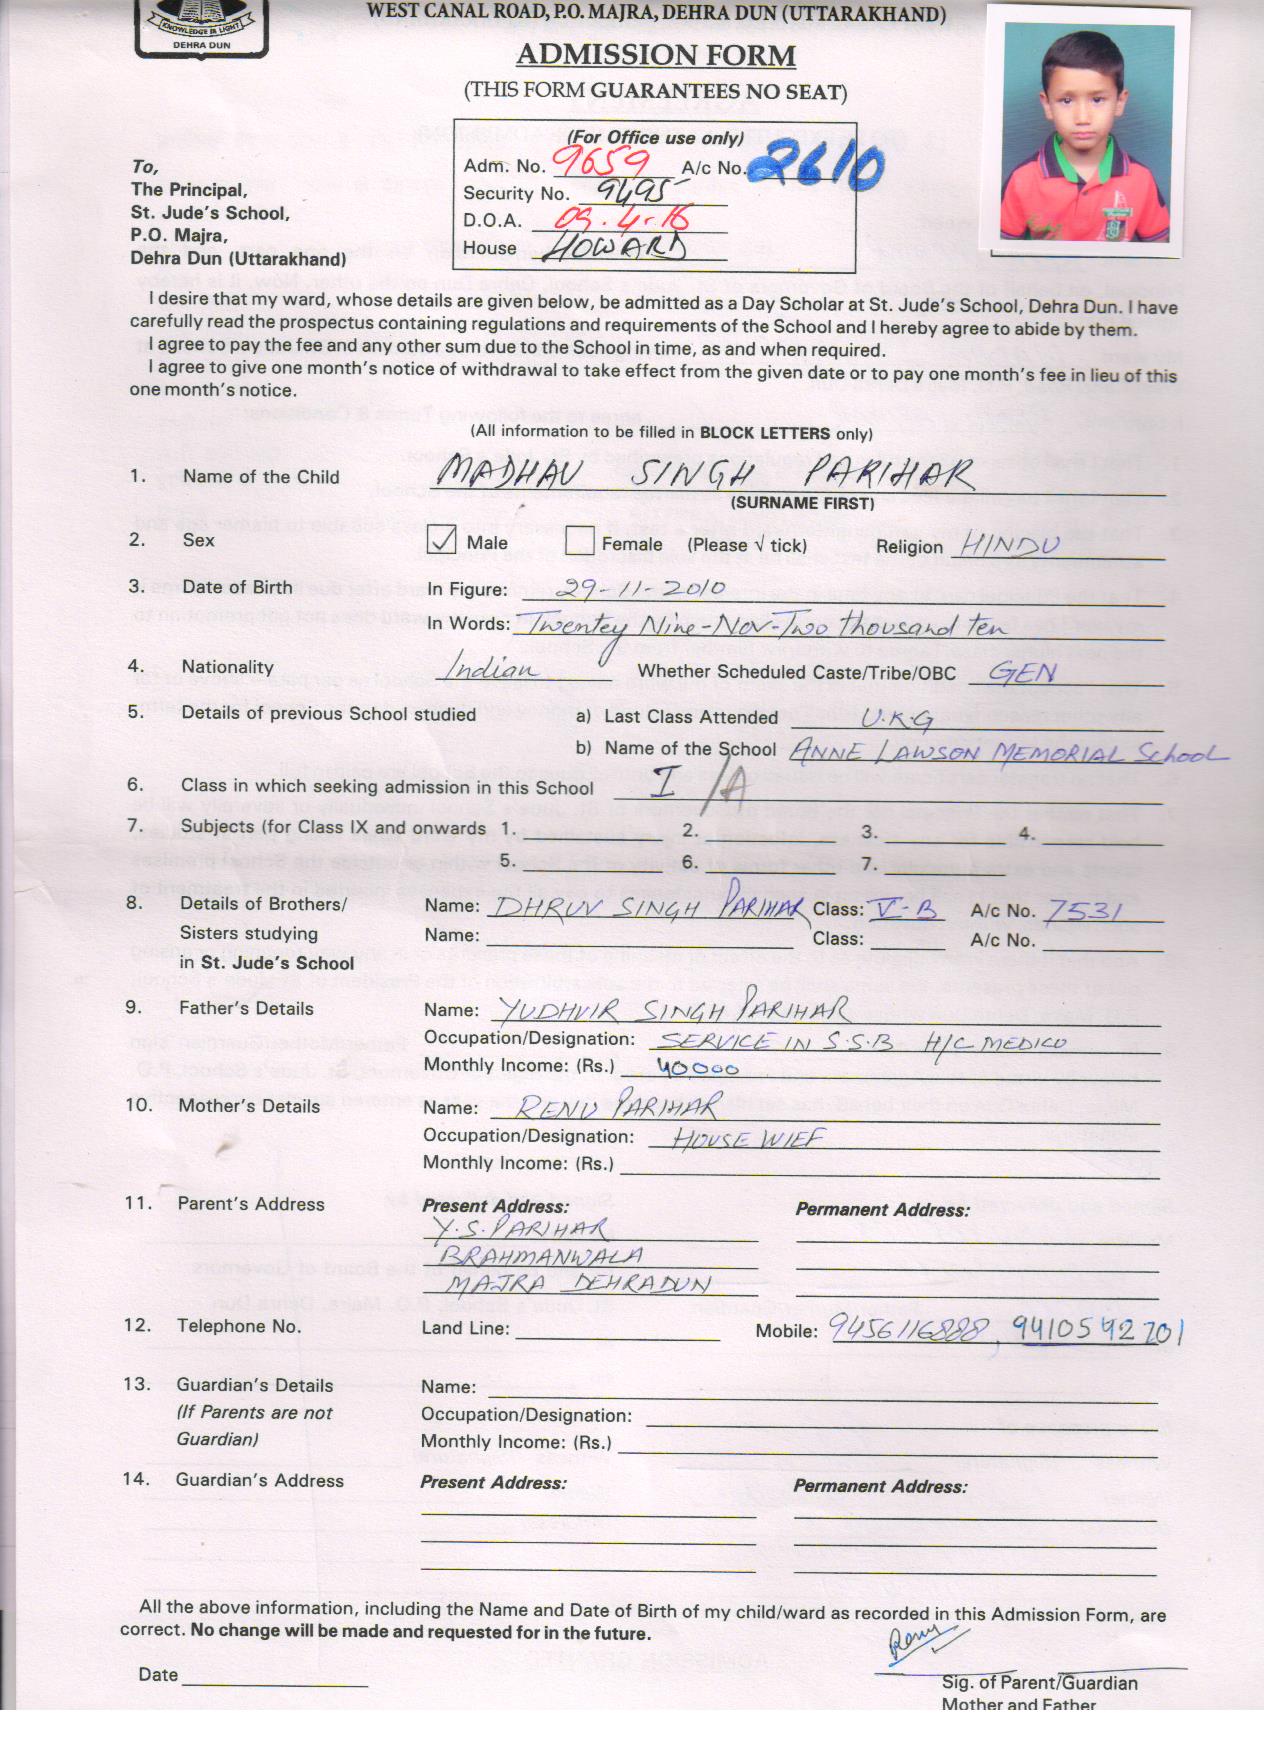 KNOWLEDGE IS LIGHT
DEHRA DUN
WEST CANAL ROAD, P.O. MAJRA, DEHRA DUN (UTTARAKHAND)
ADMISSION FORM
(THIS FORM GUARANTEES NO SEAT)
(For Office use only)
Adm. No. 9659 A/c No. 2610
Security No. 9495
D.O.A. 09.4-16
House HOWARD
To,
The Principal,
St. Jude's School,
P.O. Majra,
Dehra Dun (Uttarakhand)
I desire that my ward, whose details are given below, be admitted as a Day Scholar at St. Jude's School, Dehra Dun. I have
carefully read the prospectus containing regulations and requirements of the School and I hereby agree to abide by them.
I agree to pay the fee and any other sum due to the School in time, as and when required.
I agree to give one month's notice of withdrawal to take effect from the given date or to pay one month's fee in lieu of this
one month's notice.
(All information to be filled in BLOCK LETTERS only)
1. Name of the Child MADHAV SINGH PARIHAR
(SURNAME FIRST)
2. Sex ✓ Male Female (Please √ tick) Religion HINDU
3. Date of Birth In Figure: 29-11-2010
In Words: Twentey Nine-Nov-Two thousand ten
4. Nationality Indian Whether Scheduled Caste/Tribe/OBC GEN
5. Details of previous School studied a) Last Class Attended U.K.G
b) Name of the School ANNE LAWSON MEMORIAL School
6. Class in which seeking admission in this School I /A
7. Subjects (for Class IX and onwards 1. 2. 3. 4.
5. 6. 7.
8. Details of Brothers/ Name: DHRUV SINGH PARIHAR Class: V-B A/c No. 7531
Sisters studying Name: Class: A/c No.
in St. Jude's School
9. Father's Details Name: YUDHVIR SINGH PARIHAR
Occupation/Designation: SERVICE IN S.S.B H/C MEDICO
Monthly Income: (Rs.) 40,000
10. Mother's Details Name: RENU PARIHAR
Occupation/Designation: HOUSE WIEF
Monthly Income: (Rs.)
11. Parent's Address Present Address: Permanent Address:
Y.S. PARIHAR
BRAHMANWALA
MAJRA DEHRADUN
12. Telephone No. Land Line: Mobile: 9456116888, 9410592701
13. Guardian's Details Name:
(If Parents are not Occupation/Designation:
Guardian) Monthly Income: (Rs.)
14. Guardian's Address Present Address: Permanent Address:
All the above information, including the Name and Date of Birth of my child/ward as recorded in this Admission Form, are
correct. No change will be made and requested for in the future.
Renu
Date
Sig. of Parent/Guardian
Mother and Father